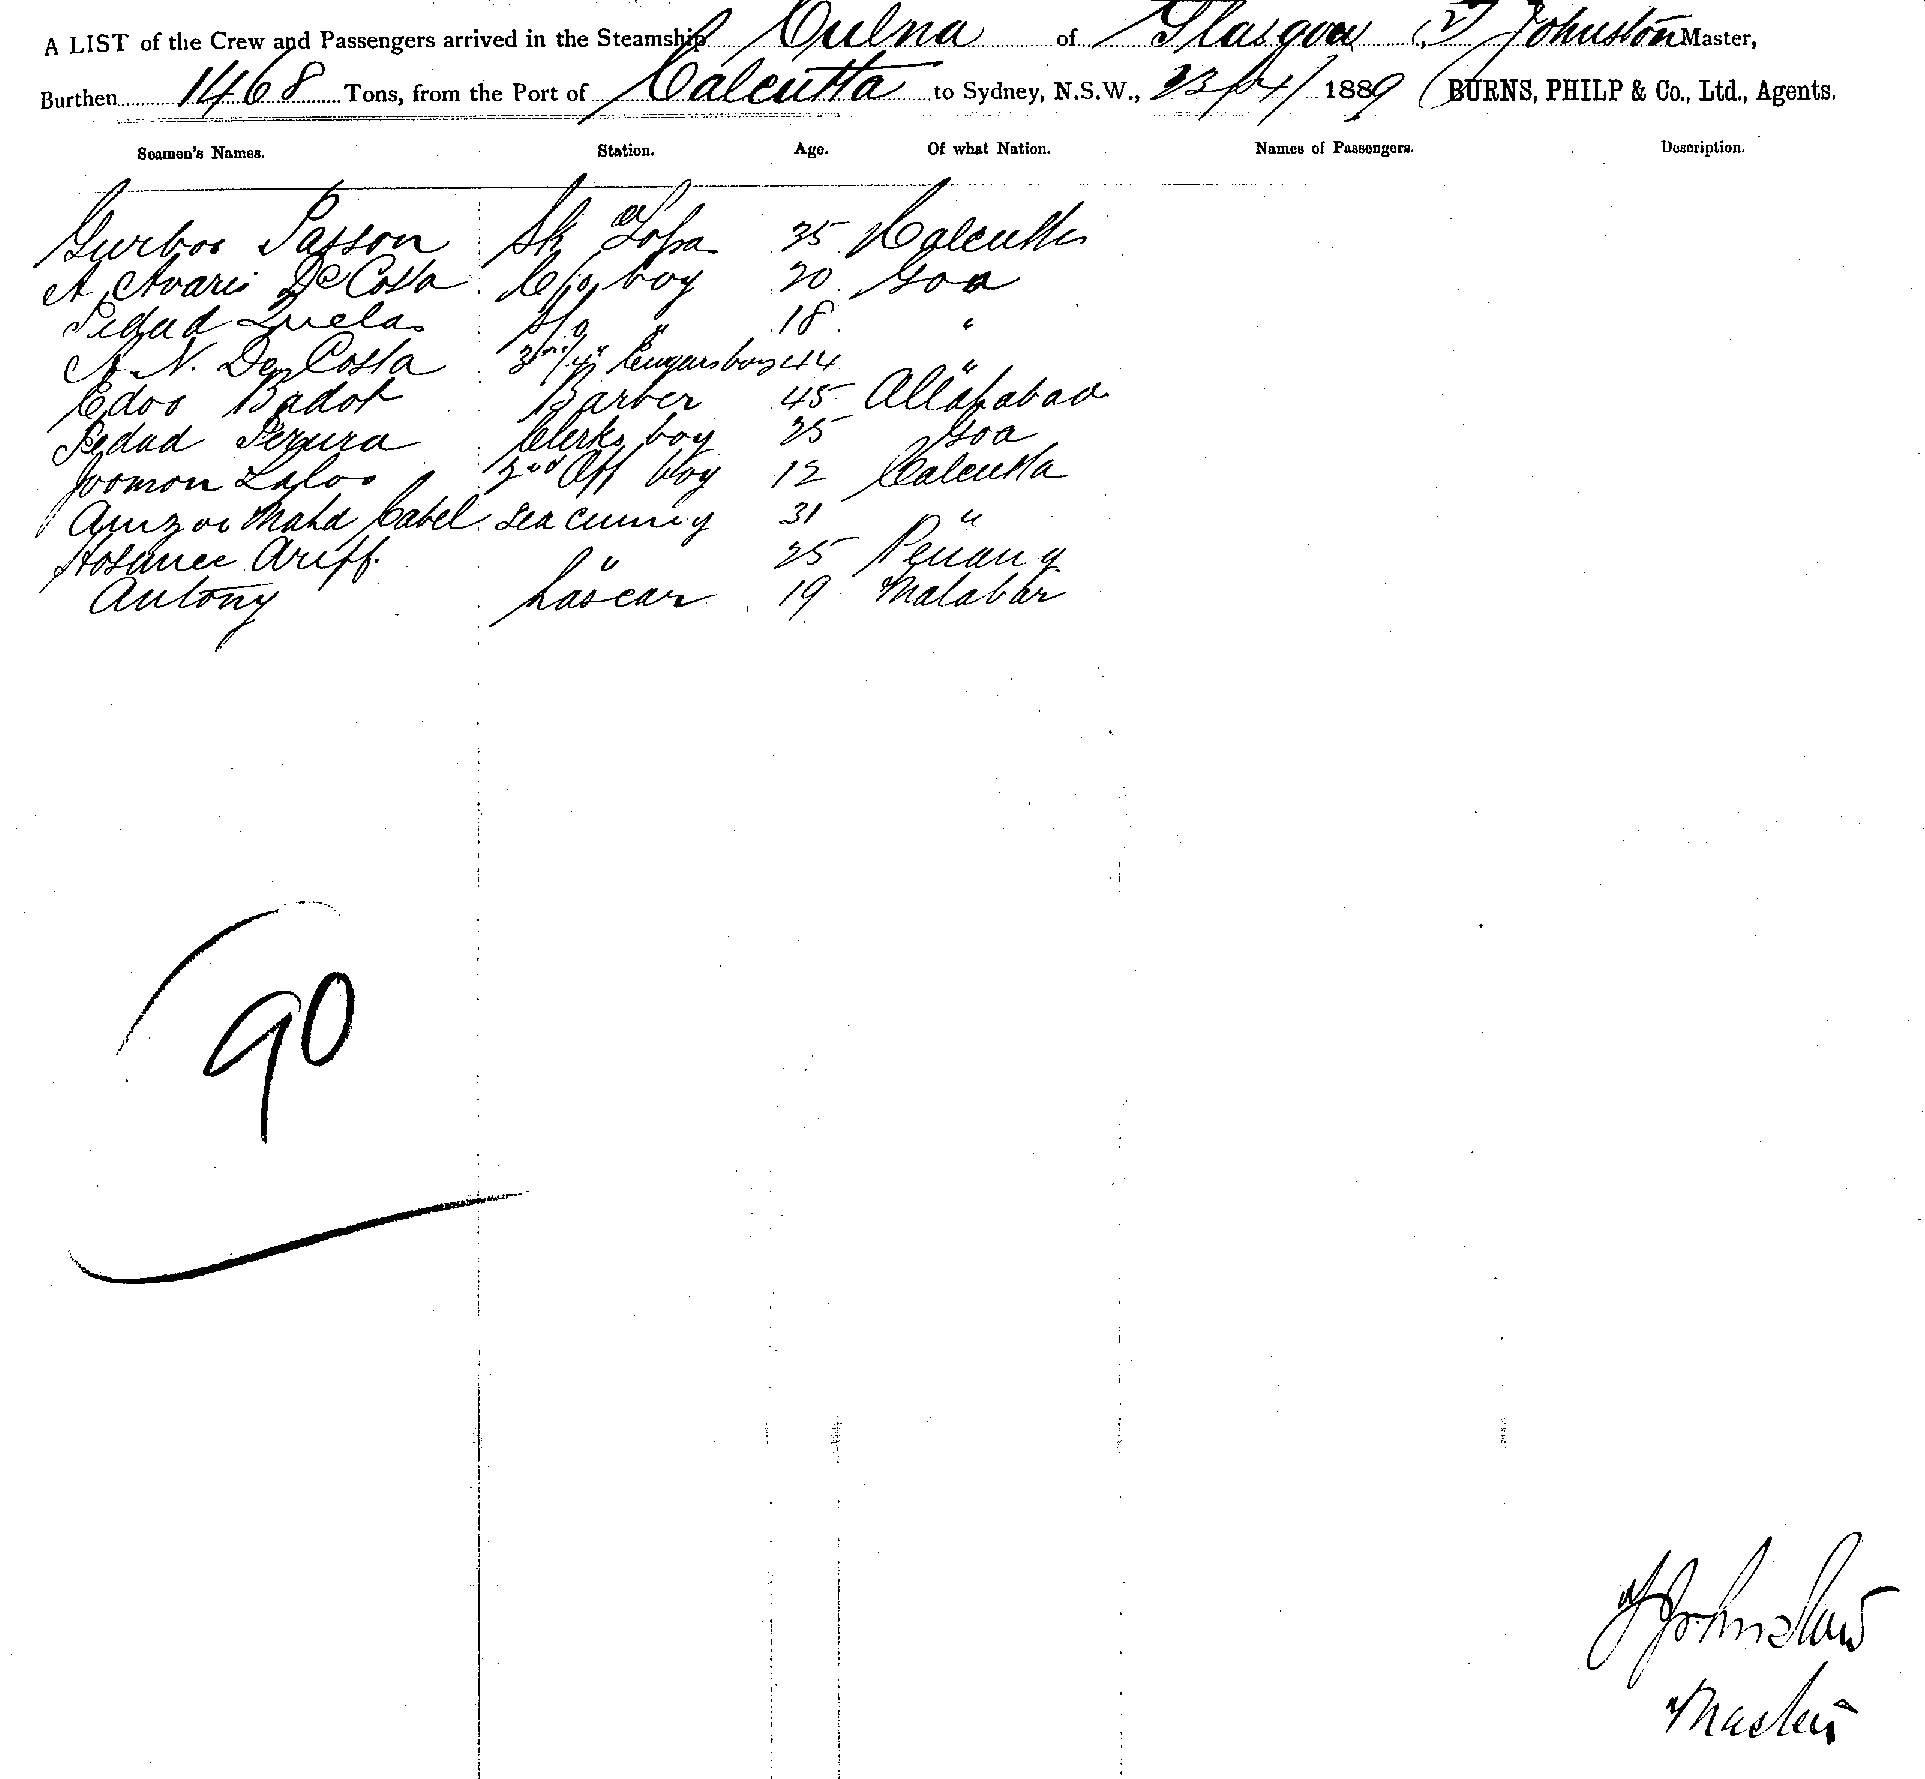 A LIST of the Crew and Passengers arrived in the Steamship Culna of Glasgow, J Johnston Master,
Burthen 1468 Tons, from the Port of Calcutta to Sydney, N.S.W., 23/4/1889 (BURNS, PHILP & Co., Ltd., Agents.
Seamen's Names. Station. Age. Of what Nation. Names of Passengers. Description.
Gurboo Passon Sk 25 Calcutta
A Avaris De Costa C/o boy 20 Goa
Pedad 18 "
A. N. De Costa 3rd/4th boy 44 "
Edoo Badot Barber 45 Allahabad
Pedad Perura Clerks boy 25 Goa
Joomon Laloo 2nd Off boy 12 Calcutta
Mahd Cabel Sea cunny 31 "
Hosanee Ariff. " 25 Penang
Antony Lascar 19 Malabar
90
J Johnston
Master